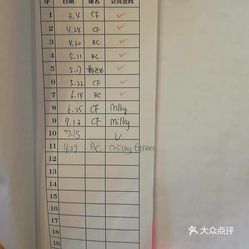 序 日期 签名 会员签到
1 3.4 CF ✓
2 4.24 CF ✓
3 4.30 BC ✓
4 5.11 BC ✓
5 5.17 ✓
6 5.22 CF ✓
7 6.18 BC ✓
8 6.25 CF milky
9 7.12 CF milky
10 7.15 ✓
11 7.24 BC milky Green
12
13
14
15
16
17
18
19
大众点评